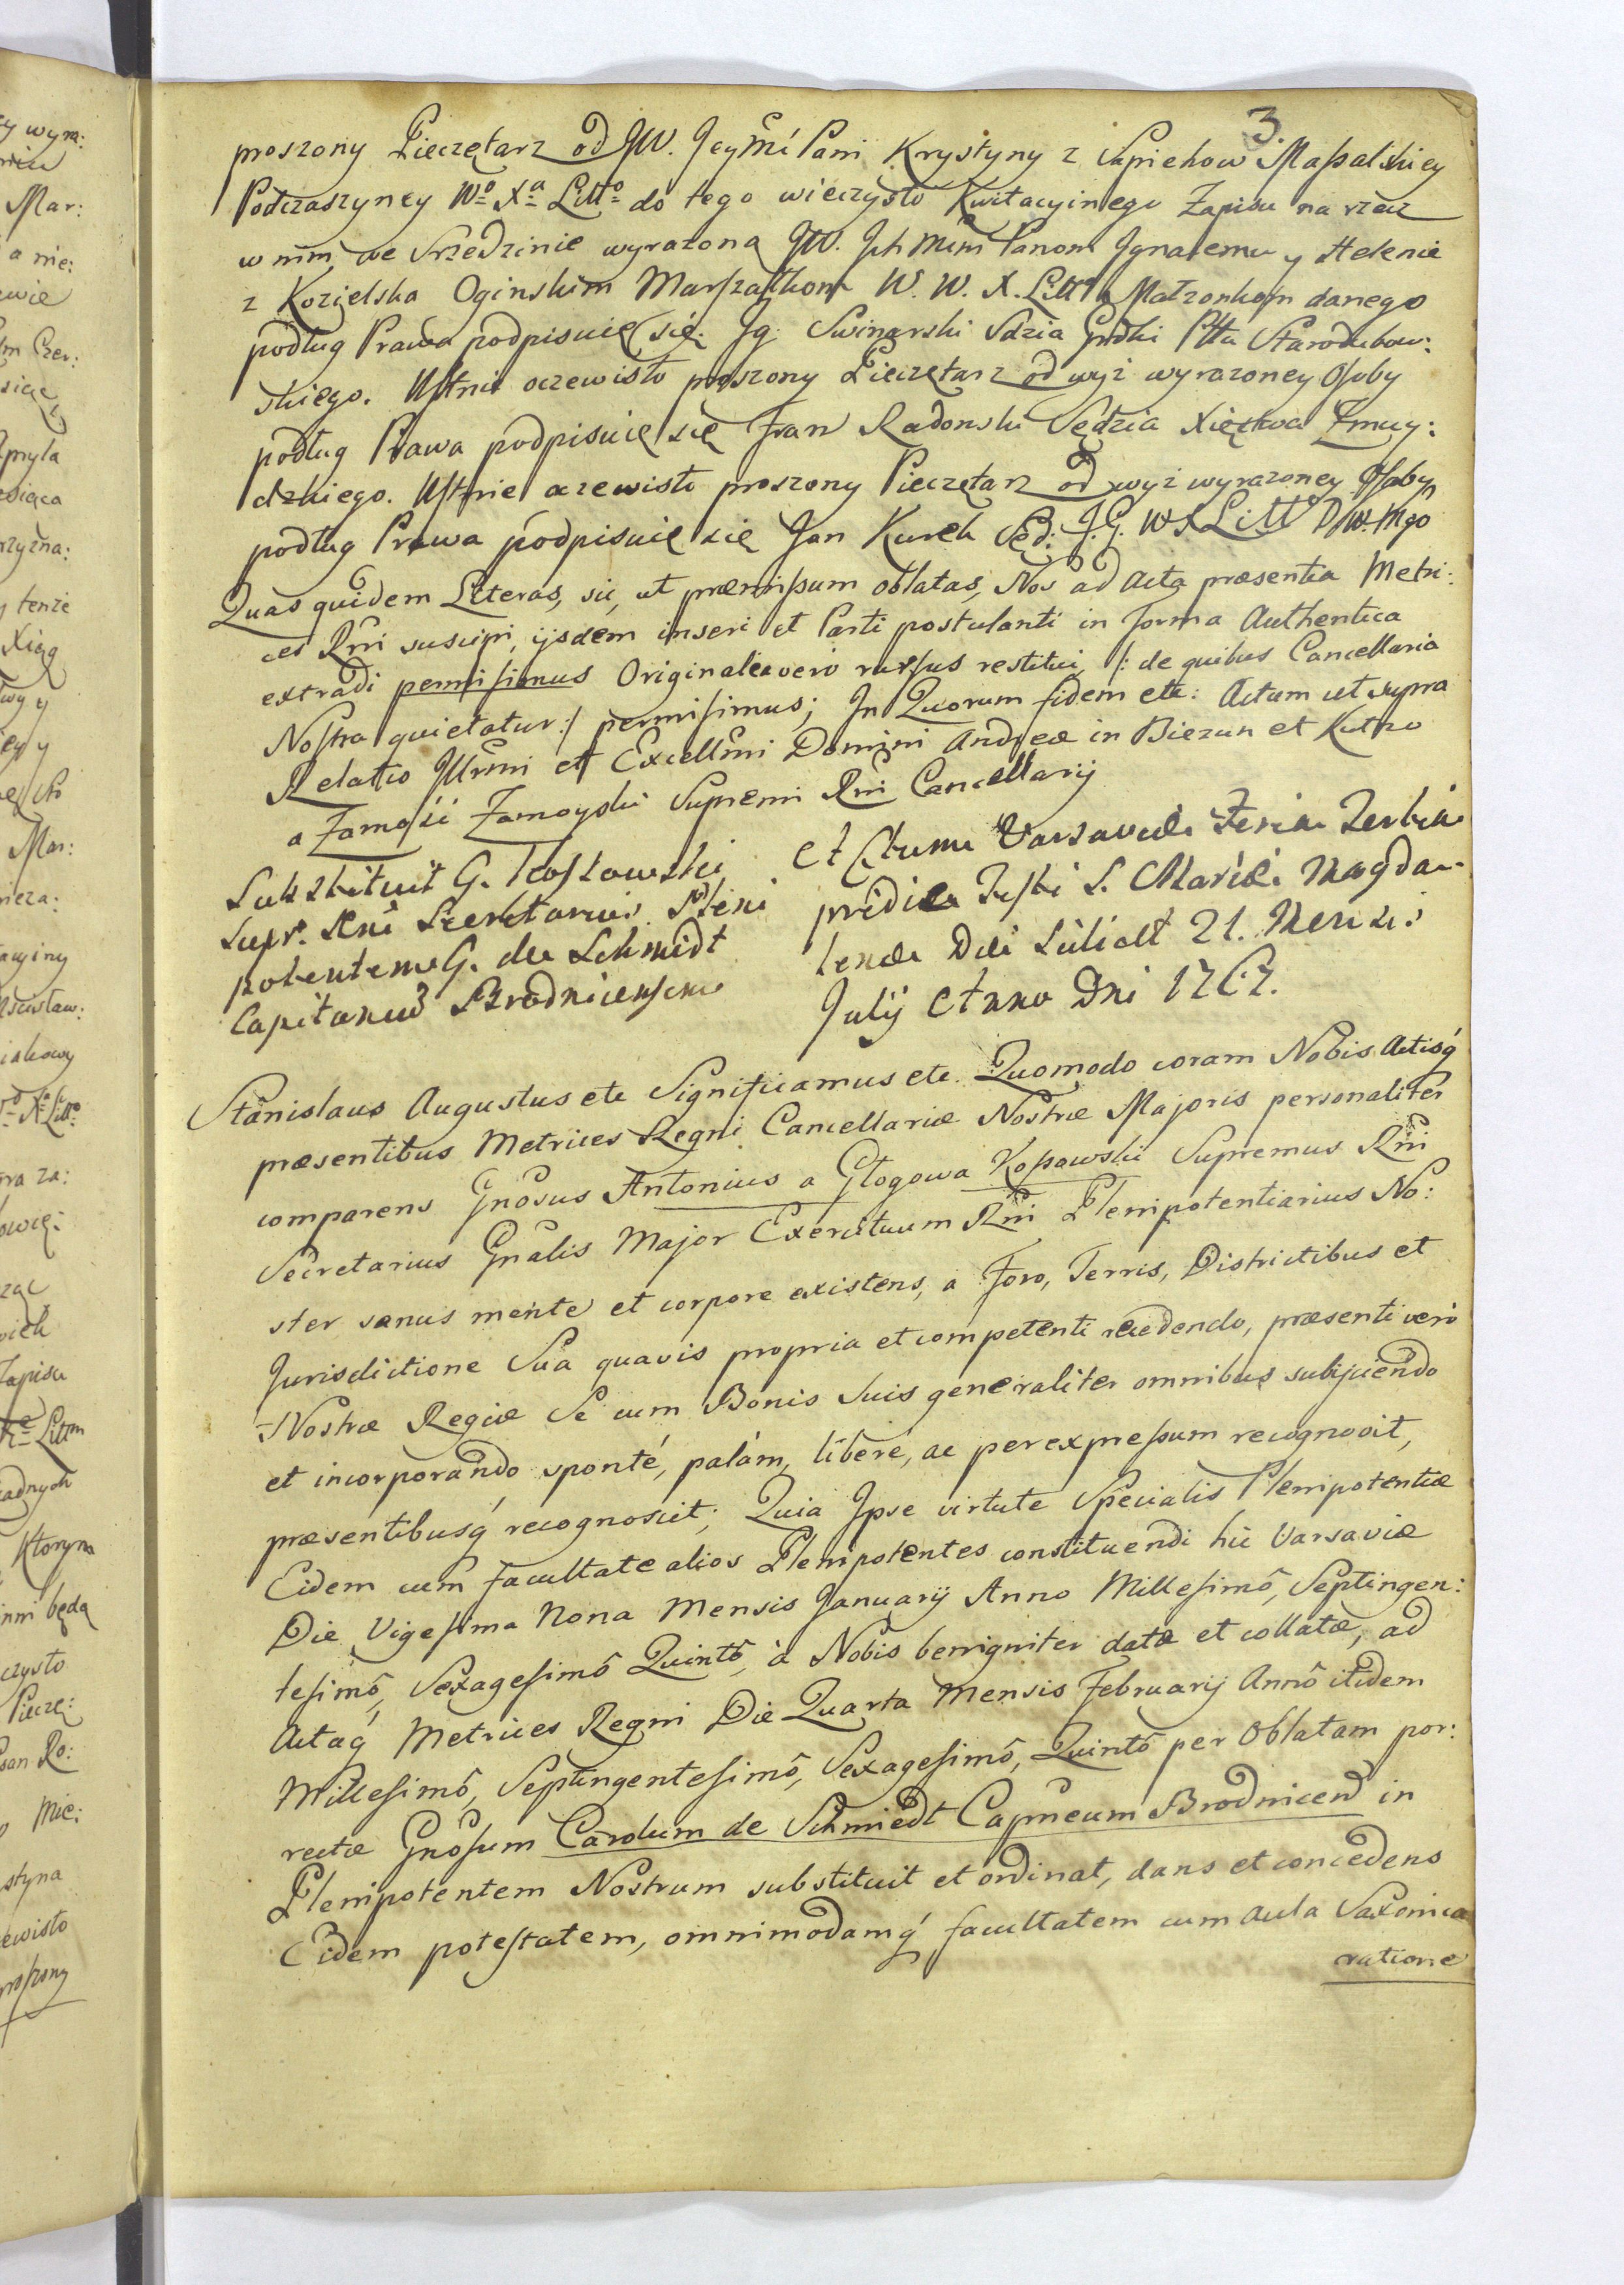 3.
proszony Pieczętarz od JW. Jeymći Pani Krystyny z Sapiehow Maßalskiey
Podczaszyney Wº Xª Littº do tego wieczysto Kwitacyinego Zapisu na rzecz
w nim, we Srzedzinie wyrazoną JW. Ich Mćm Panom Ignacemu y Helenie
z Kozielska Oginskim Marszałkom W. W. X. Littº Małzonkom danego
podług Prawa podpisuię się. Ig. Swinarski Sdzia Grdki Pttu Starodubow:
skiego. Ustnie oczewisto proszony Pieczętarz od wyż wyrazoney Osoby
podług Prawa podpisuię się Fran Radonski Sędzia Xięstwa Zmuy:
dzkiego. Ustnie oczewisto proszony Pieczętarz od wyż wyrazoney Osoby
podług Prawa podpisuię się Jan Kurek Sęd: J. G. W X Litt
Quas quidem Literas, sic, ut præmißum oblatas, Nos ad Acta præsentia Metri:
ces Rni suscipi, ijsdem inseri et Parti postulanti in forma Authentica
extradi permisimus Originales vero rursus restitui, /: de quibus Cancellaria
Nostra quietatur :/ permisimus; In Quorum fidem etc: Actum ut supra
Relatio Illrmi et Excellmi Domini Andreæ in Biezun et Kutno
a Zamość Zamoyski Supremi Rni Cancellarij
Substituit G. Kossowski
Supr. Rni Secretarius Pleni
potentem G. de Schmidt
Capitaneum Brodnicensem
Actum Varsaviæ Feria Tertia
pridie Festi S. Mariæ Magda-
lenæ Die Silicet 21. Mensis
Julij Anno Dni 1767.
Stanislaus Augustus etc Significamus etc. Quomodo coram Nobis Actisq́
præsentibus Metrices Regni Cancellariæ Nostræ Majoris personaliter
comparens Gnosus Antonius a Głogowa Koßowski Supremus Rni
Secretarius Gnalis Major Exercituum Rni Plenipotentiarius No:
ster sanus mente et corpore existens, a Foro, Terris, Districtibus et
Jurisdictione Sua quavis propria et competenti recedendo, præsenti verò
Nostræ Regiæ Se cum Bonis Suis generaliter omnibus subijciendo
et incorporando sponté, palám, liberé, ac per expreßum recognovit,
præsentibusq́ recognoscit; Quia Ipse virtute Specialis Plenipotentiæ
Eidem cum facultate alios Plenipotentes constituendi hic Varsaviæ
Die Vigesima Nona Mensis Januarij Anno Millesimô, Septingen:
tesimô, Sexagesimô Quintô, à Nobis benigniter datæ et collatæ, ad
Actaq́ Metrices Regni Die Quarta Mensis Februarij Annô itidem
Millesimô, Septingentesimô, Sexagesimô, Quintô per Oblatam por:
rectæ Gnosum Carolum de Schmiedt Capneum Brodnicen in
Plenipotentem Nostrum substituit et ordinat, dans et concedens
Eidem potestatem, omnimodamq́ facultatem cum Aula Saxonica
ratione